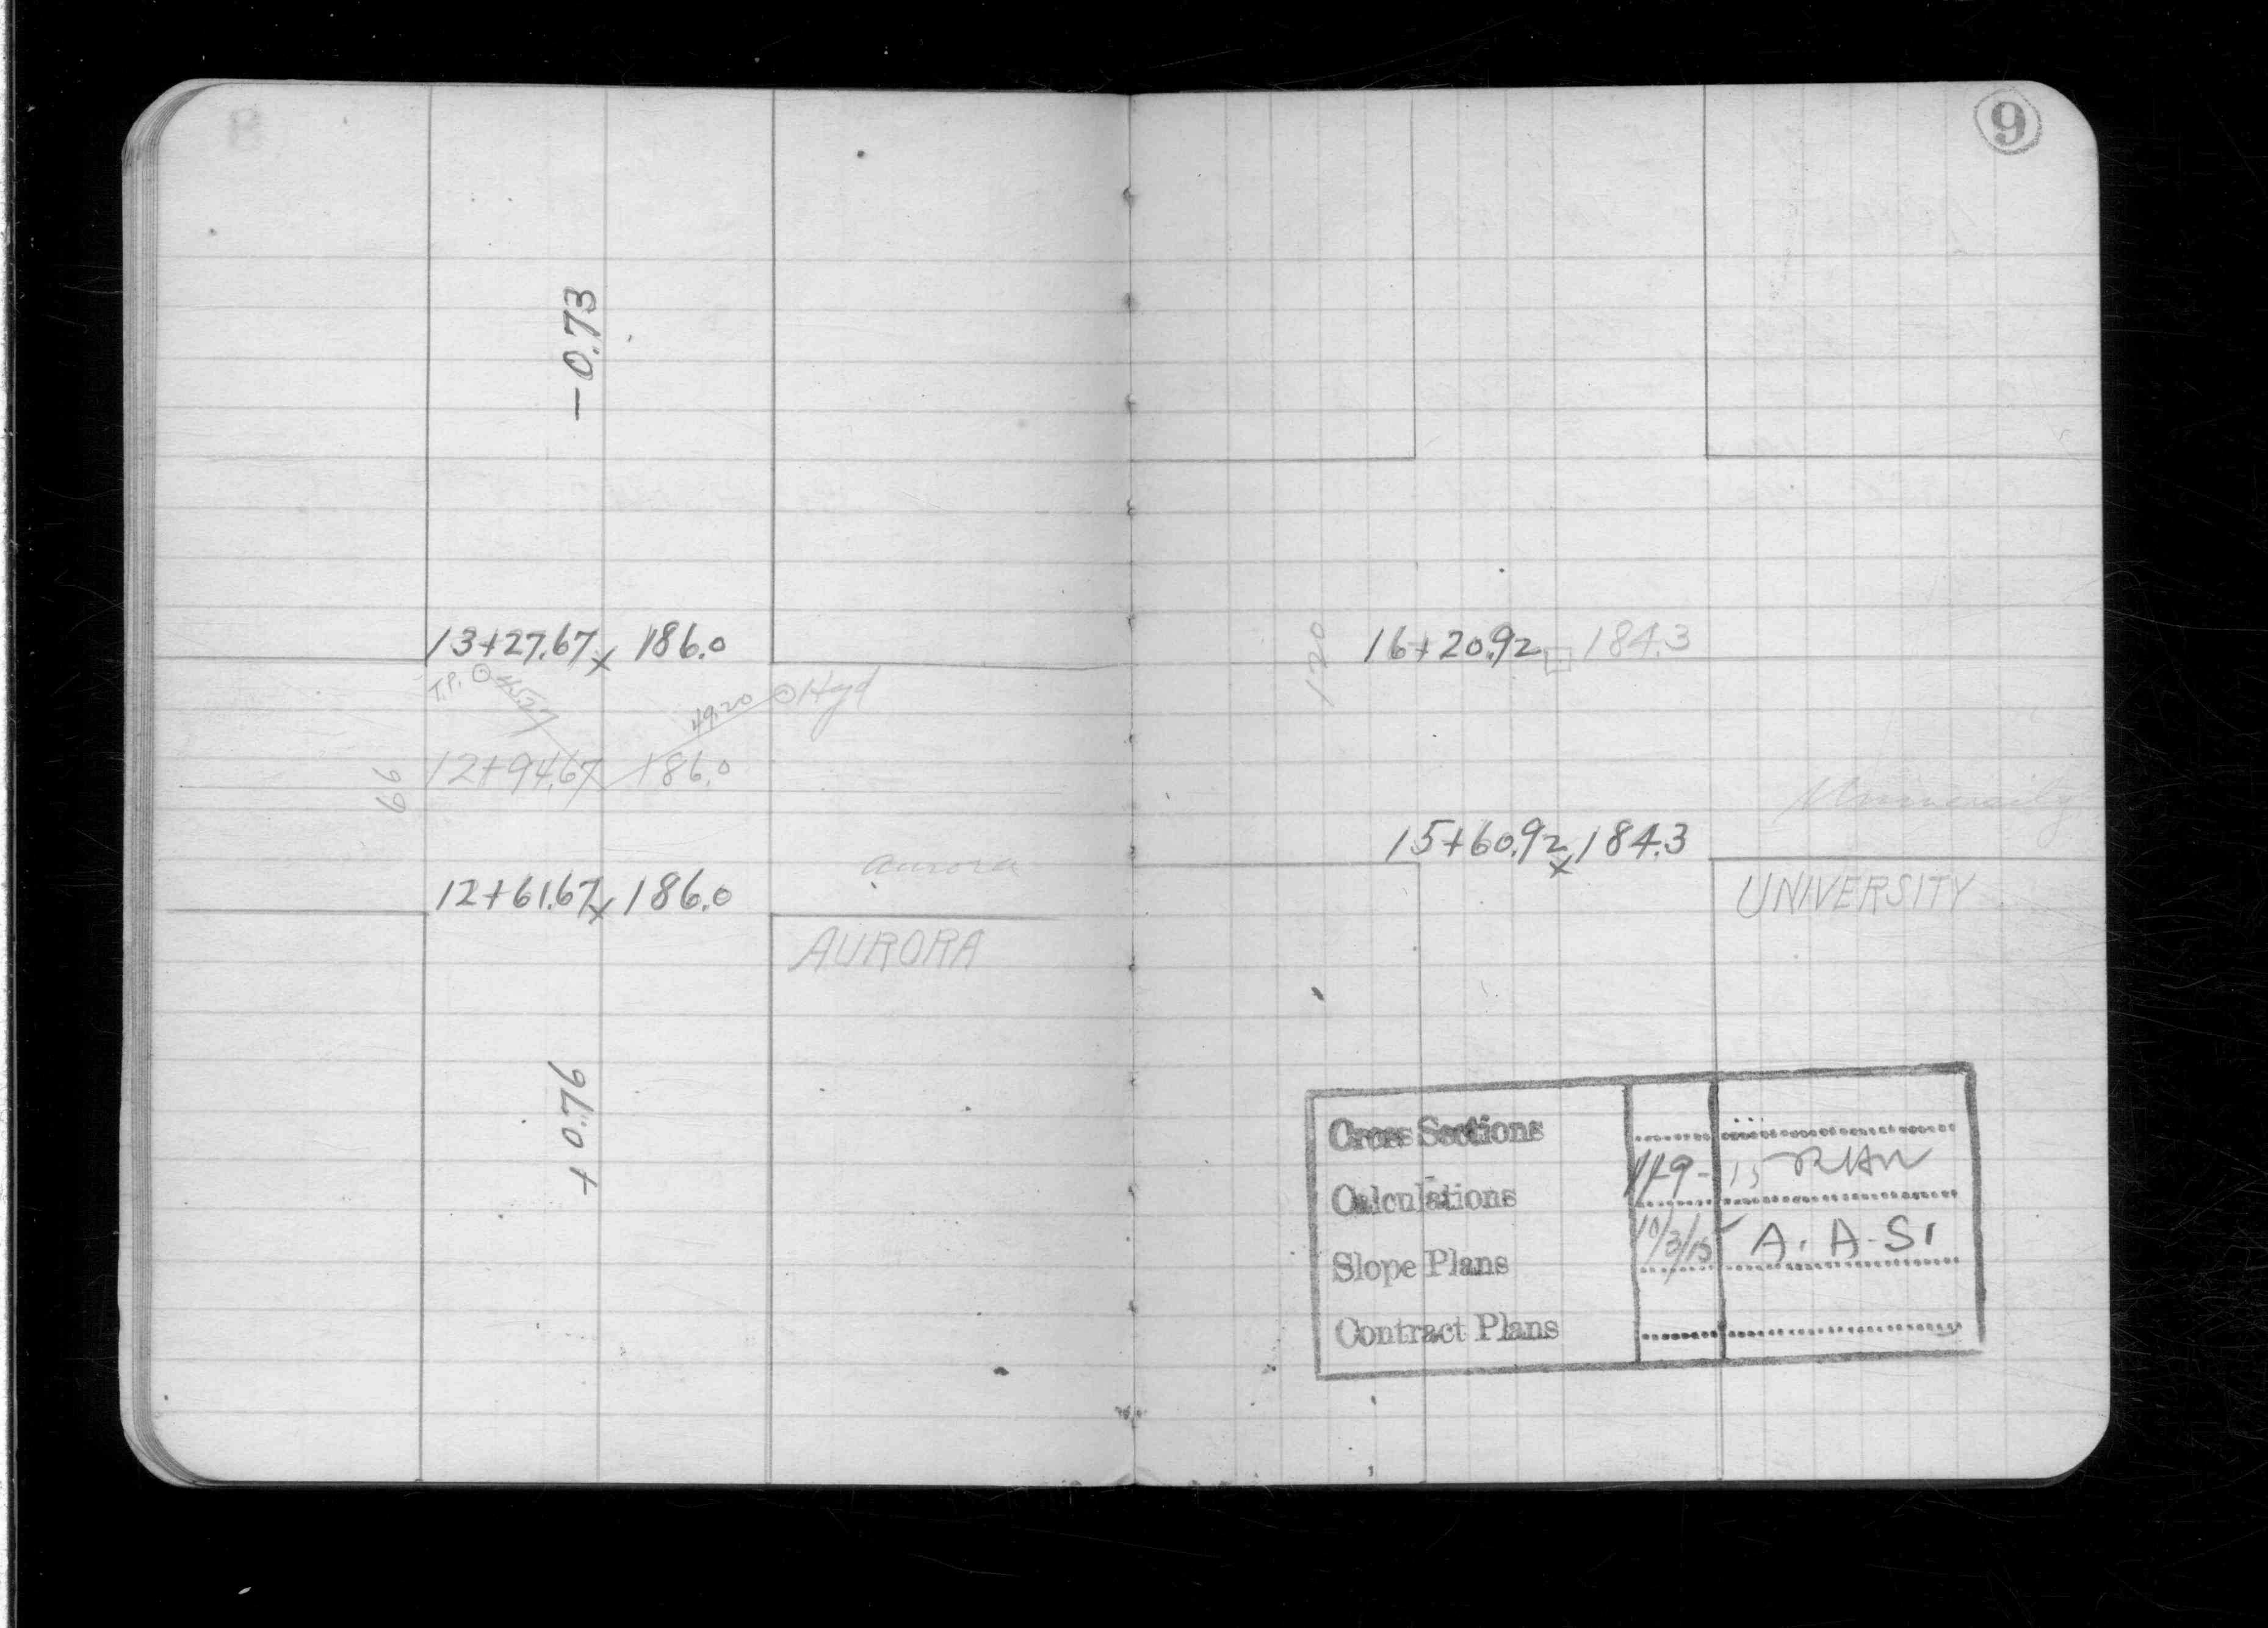 8
-0.73
13+27.67 x 186.0
T.P. 45.27
49.20 Hyd
66
12+94.67 186.0
Aurora
12+61.67 x 186.0
AURORA
+0.76
9
120
16+20.92 184.3
University
15+60.92 x 184.3
UNIVERSITY
Cross Sections
Calculations 11-9-15
Slope Plans 10/3/15 A. A. S.
Contract Plans